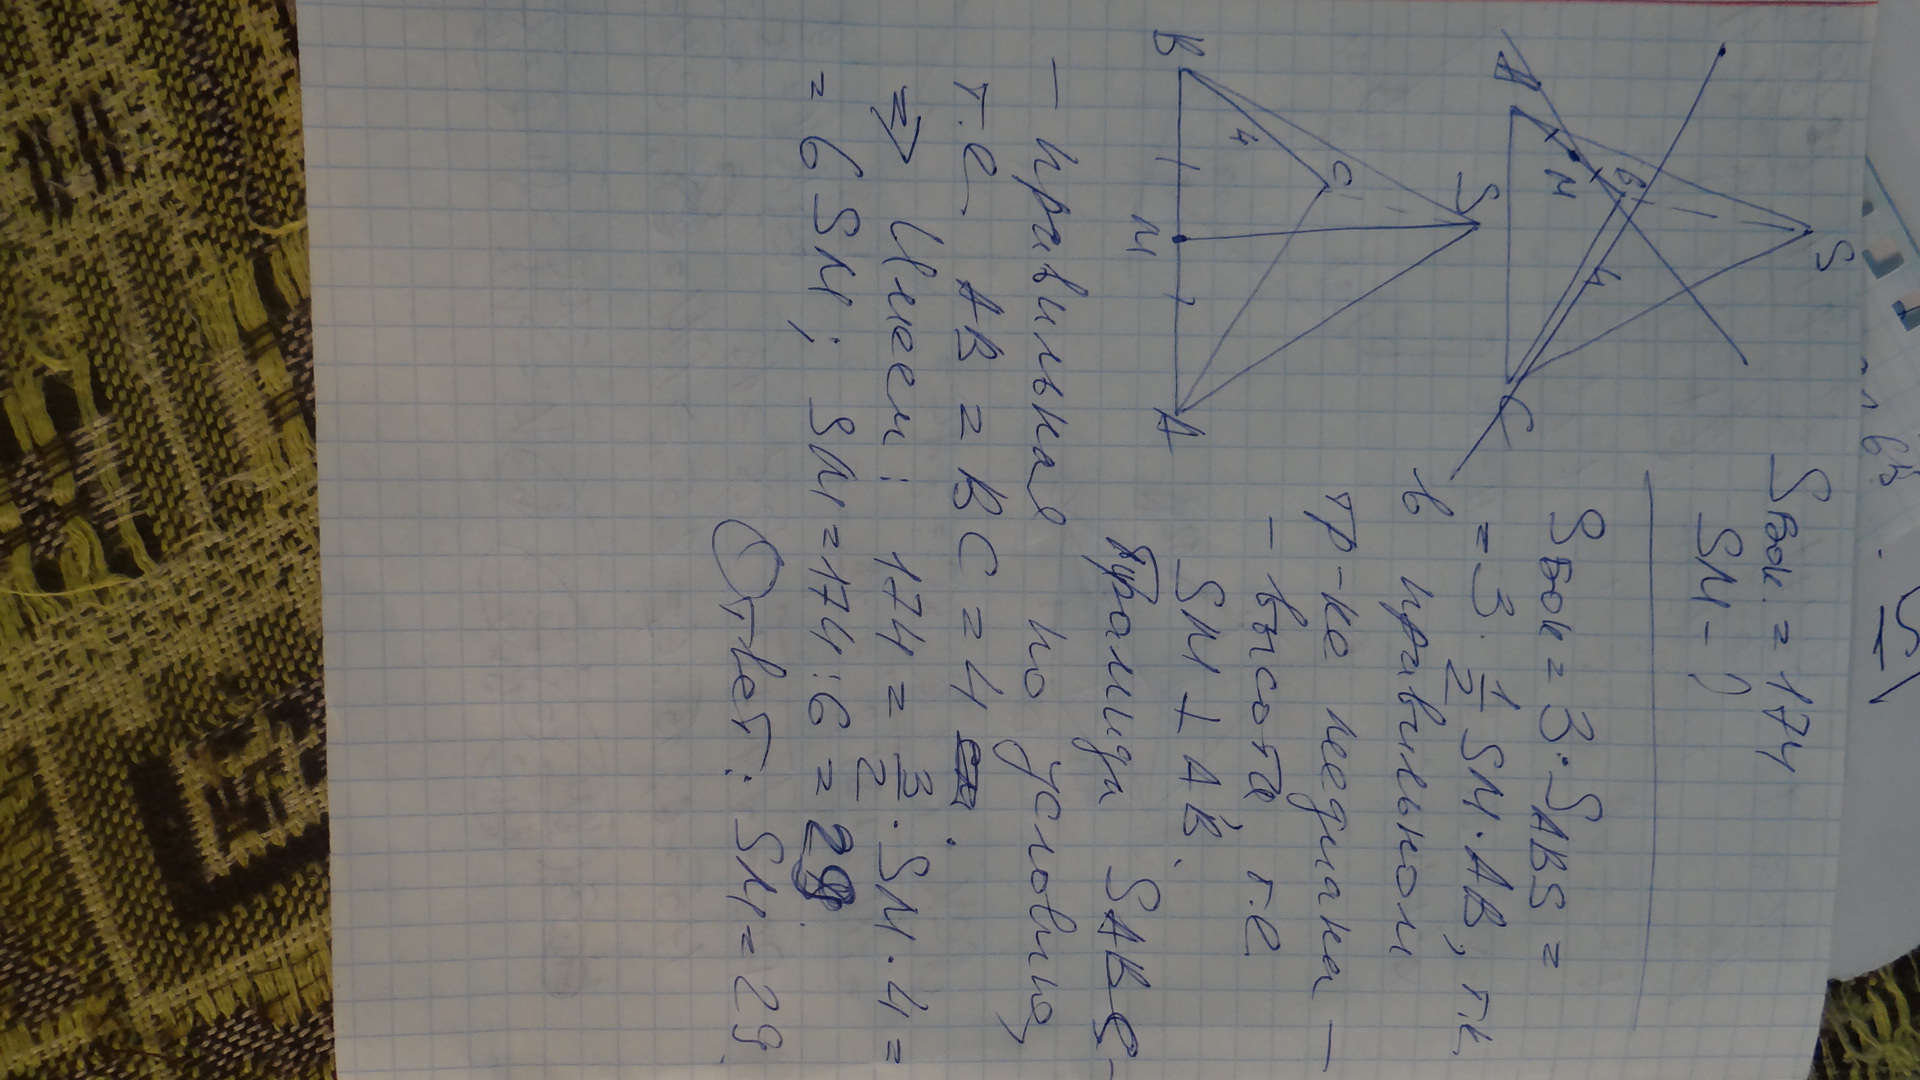 Sбок. = 174
SM - ?
Sбок = 3·S_ABS =
= 3 · 1/2 SM · AB, т.к.
в правильном
тр-ке медиана -
- высота, т.е
SM ⊥ AB.
Пирамида SABC -
- правильная по условию,
т.е. AB = BC = 4 .
⇒ Имеем: 174 = 3/2 · SM · 4 =
= 6 SM; SM = 174 : 6 = 29.
Ответ: SM = 29.
S
A
M
B
4
C
S
B
4
C
M
A